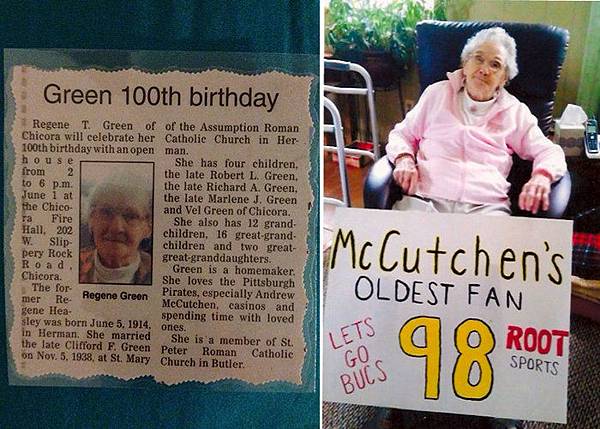 Green 100th birthday
Regene T. Green of
Chicora will celebrate her
100th birthday with an open
house
from 2
to 6 p.m.
June 1 at
the Chico-
ra Fire
Hall, 202
W. Slip-
pery Rock
Road,
Chicora.
The for-
mer Re-
gene Hea-
sley was born June 5, 1914,
in Herman. She married
the late Clifford F. Green
on Nov. 5, 1938, at St. Mary
Regene Green
of the Assumption Roman
Catholic Church in Her-
man.
She has four children,
the late Robert L. Green,
the late Richard A. Green,
the late Marlene J. Green
and Vel Green of Chicora.
She also has 12 grand-
children, 16 great-grand-
children and two great-
great-granddaughters.
Green is a homemaker.
She loves the Pittsburgh
Pirates, especially Andrew
McCutchen, casinos and
spending time with loved
ones.
She is a member of St.
Peter Roman Catholic
Church in Butler.
McCutchen's
OLDEST FAN
LETS
GO
BUCS
98
ROOT
SPORTS